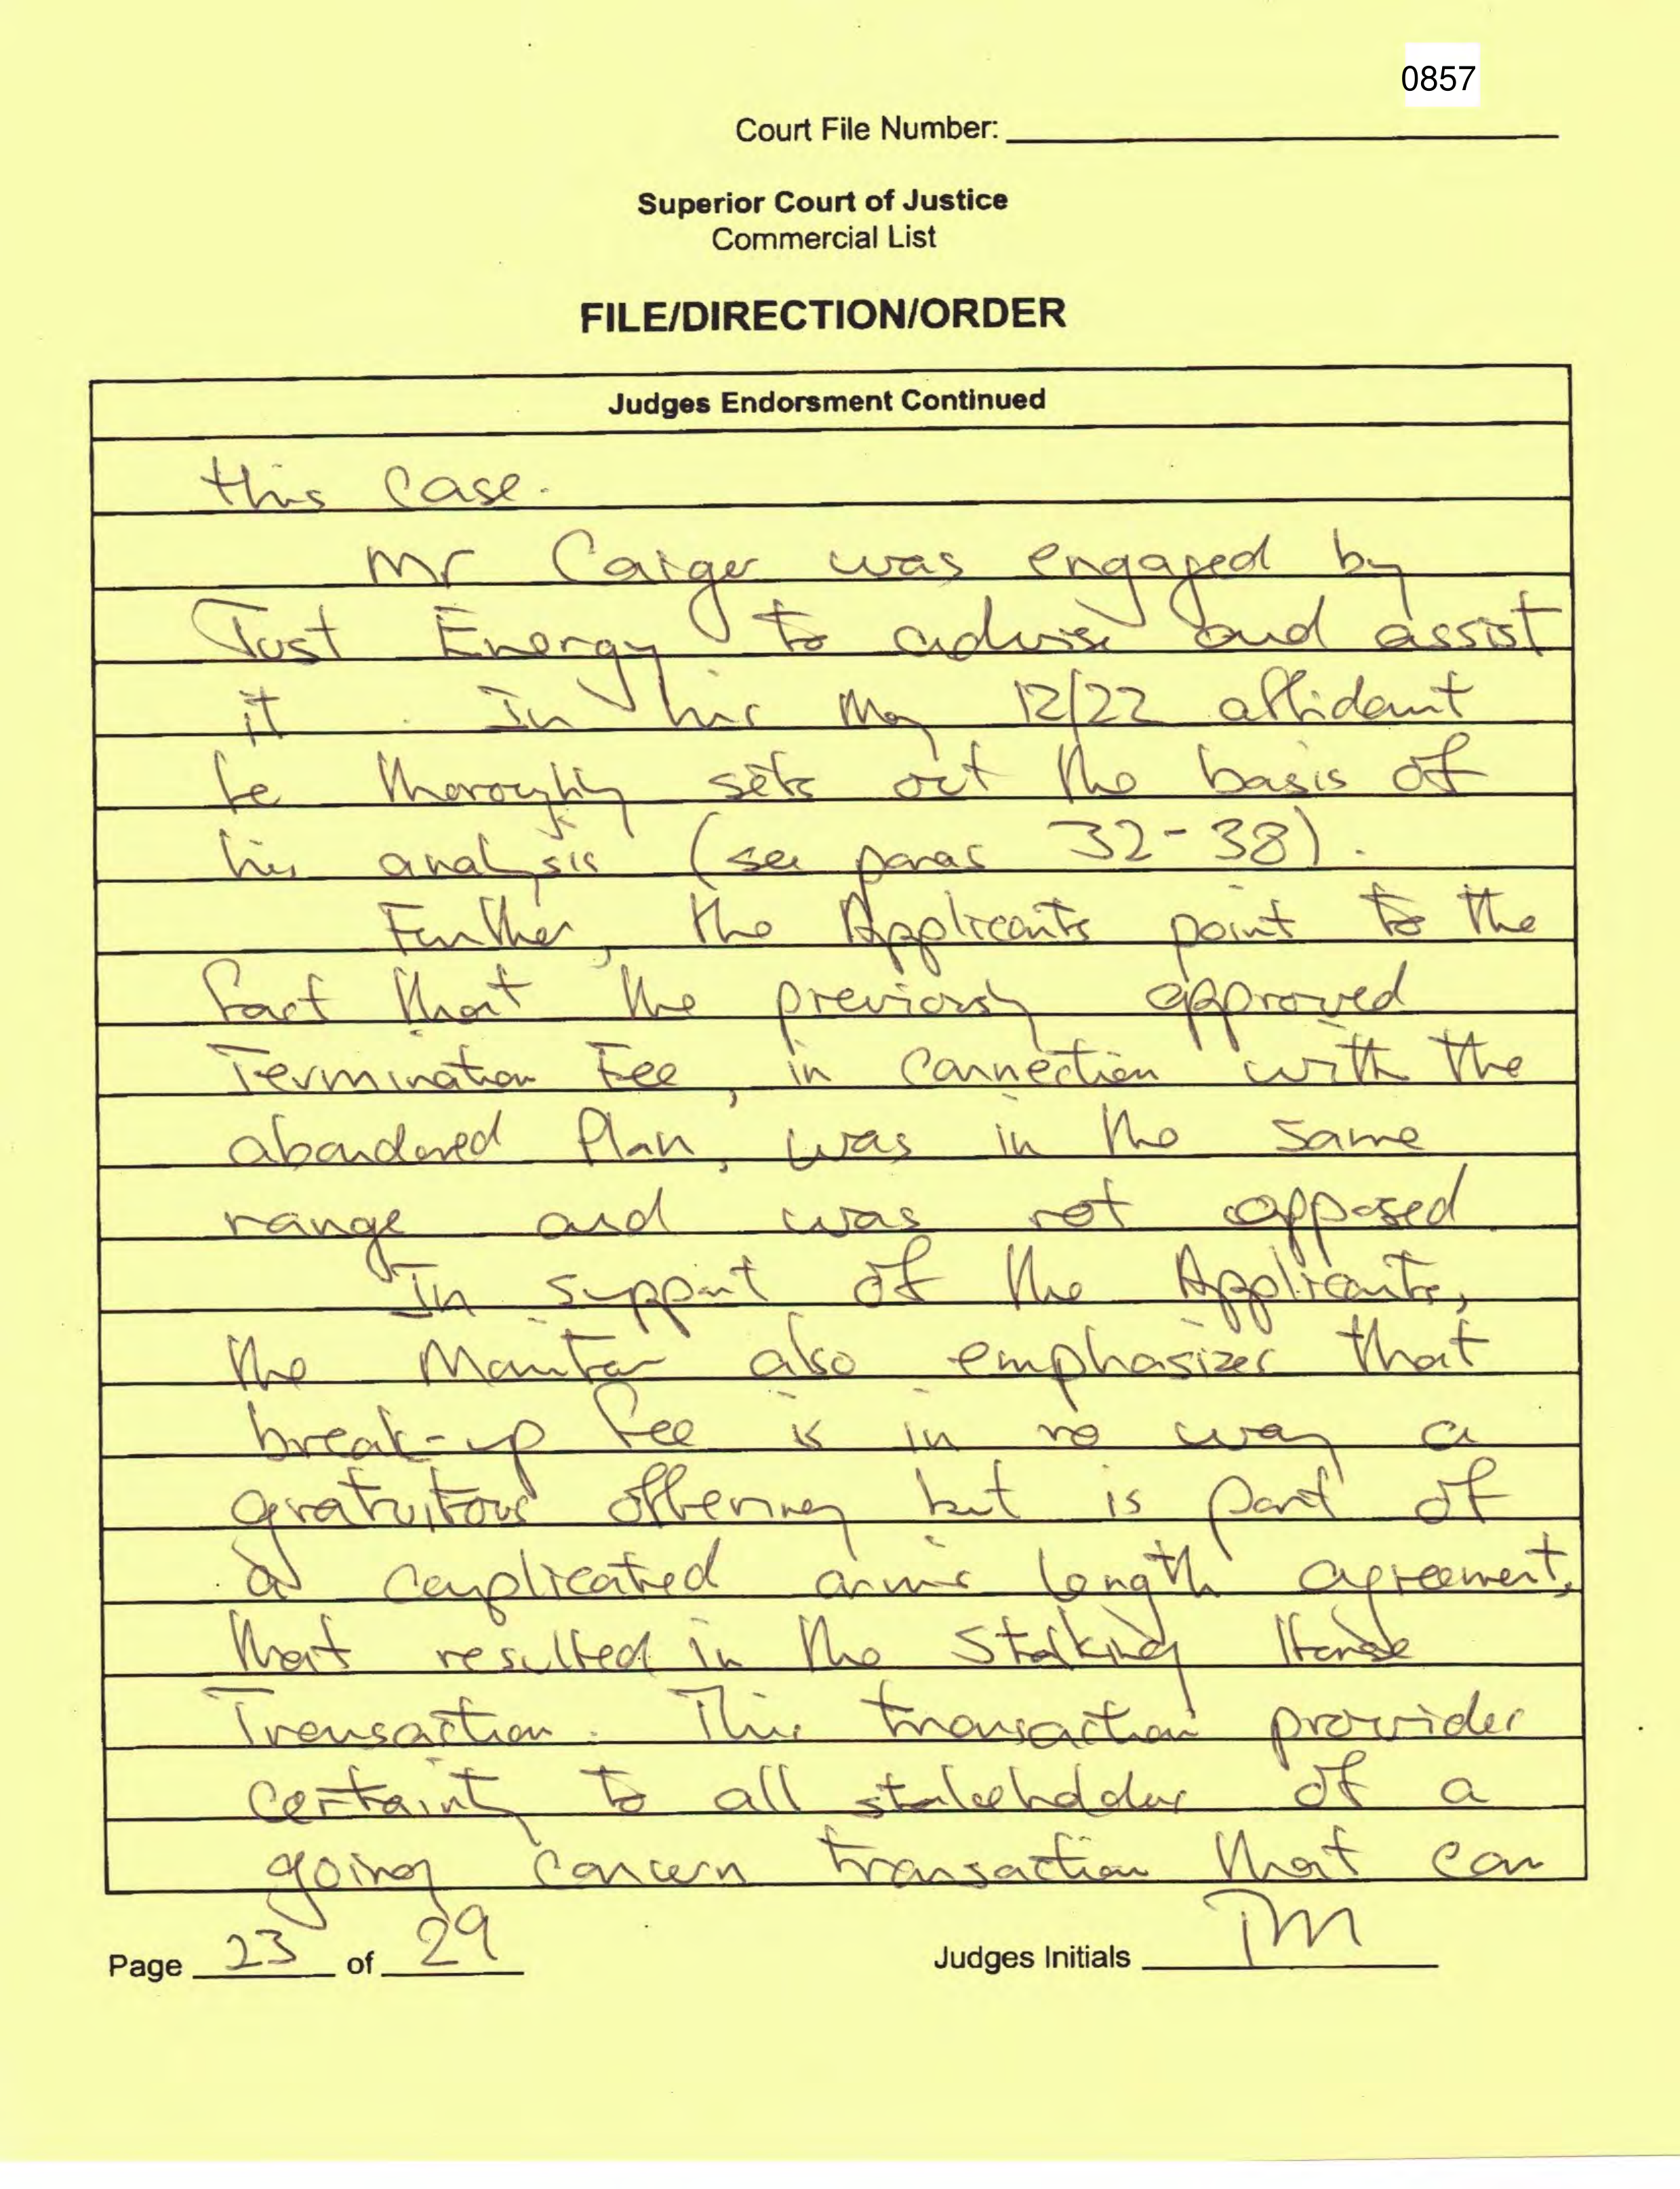 0857
Court File Number:
Superior Court of Justice
Commercial List
FILE/DIRECTION/ORDER
Judges Endorsment Continued
this case.
Mr Caiger was engaged by
Just Energy to advise and assist
it. In his May 12/22 affidavit
he thoroughly sets out the basis of
his analysis (see paras 32-38).
Further, the Applicants point to the
fact that the previously approved
Termination Fee, in connection with the
abandoned Plan, was in the same
range and was not opposed.
In support of the Applicants,
the Monitor also emphasizes that
break-up fee is in no way a
gratuitous offering but is part of
a complicated arm's length agreement,
that resulted in the Stalking Horse
Transaction. This transaction provides
certainty to all stakeholders of a
going concern transaction that can
Page 23 of 29
Judges Initials TM